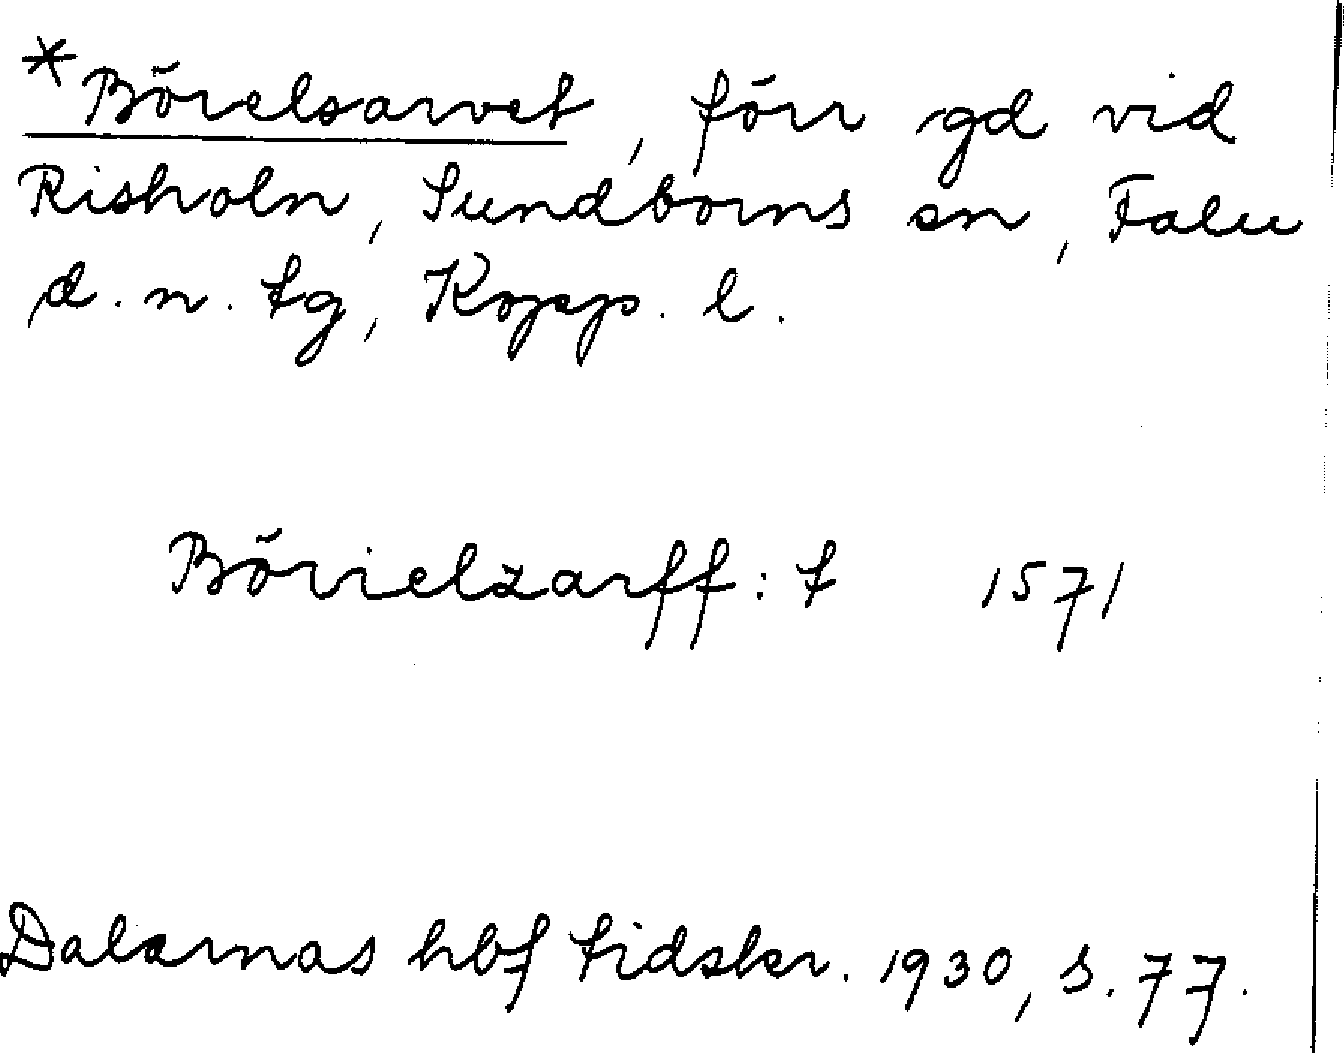 *Börelsarvet, förr gd vid
Risholn, Sundborns sn, Falu
d. n. tg, Kopp. l.
Börielzarff: t 1571
Dalarnas hbf tidskr. 1930, s. 77.